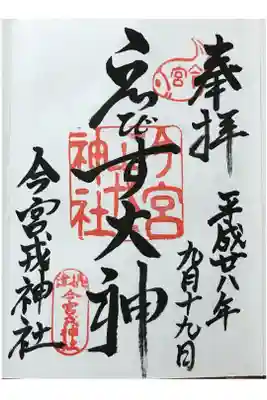 奉拝
平成廿八年
九月十九日
えびす大神
今宮戎神社
今宮戎神社
宮
今宮戎神社